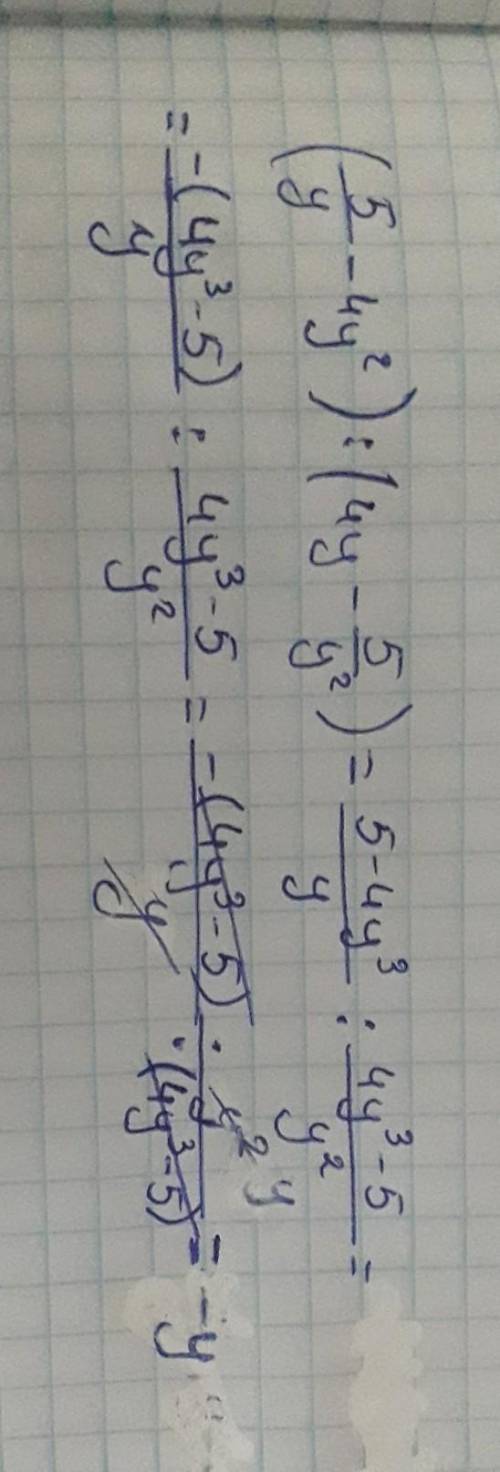 (5/y - 4y²) : (4y - 5/y²) = (5-4y³)/y : (4y³-5)/y² =
= -(4y³-5)/y : (4y³-5)/y² = -(4y³-5) · y² y / y · (4y³-5) = -y